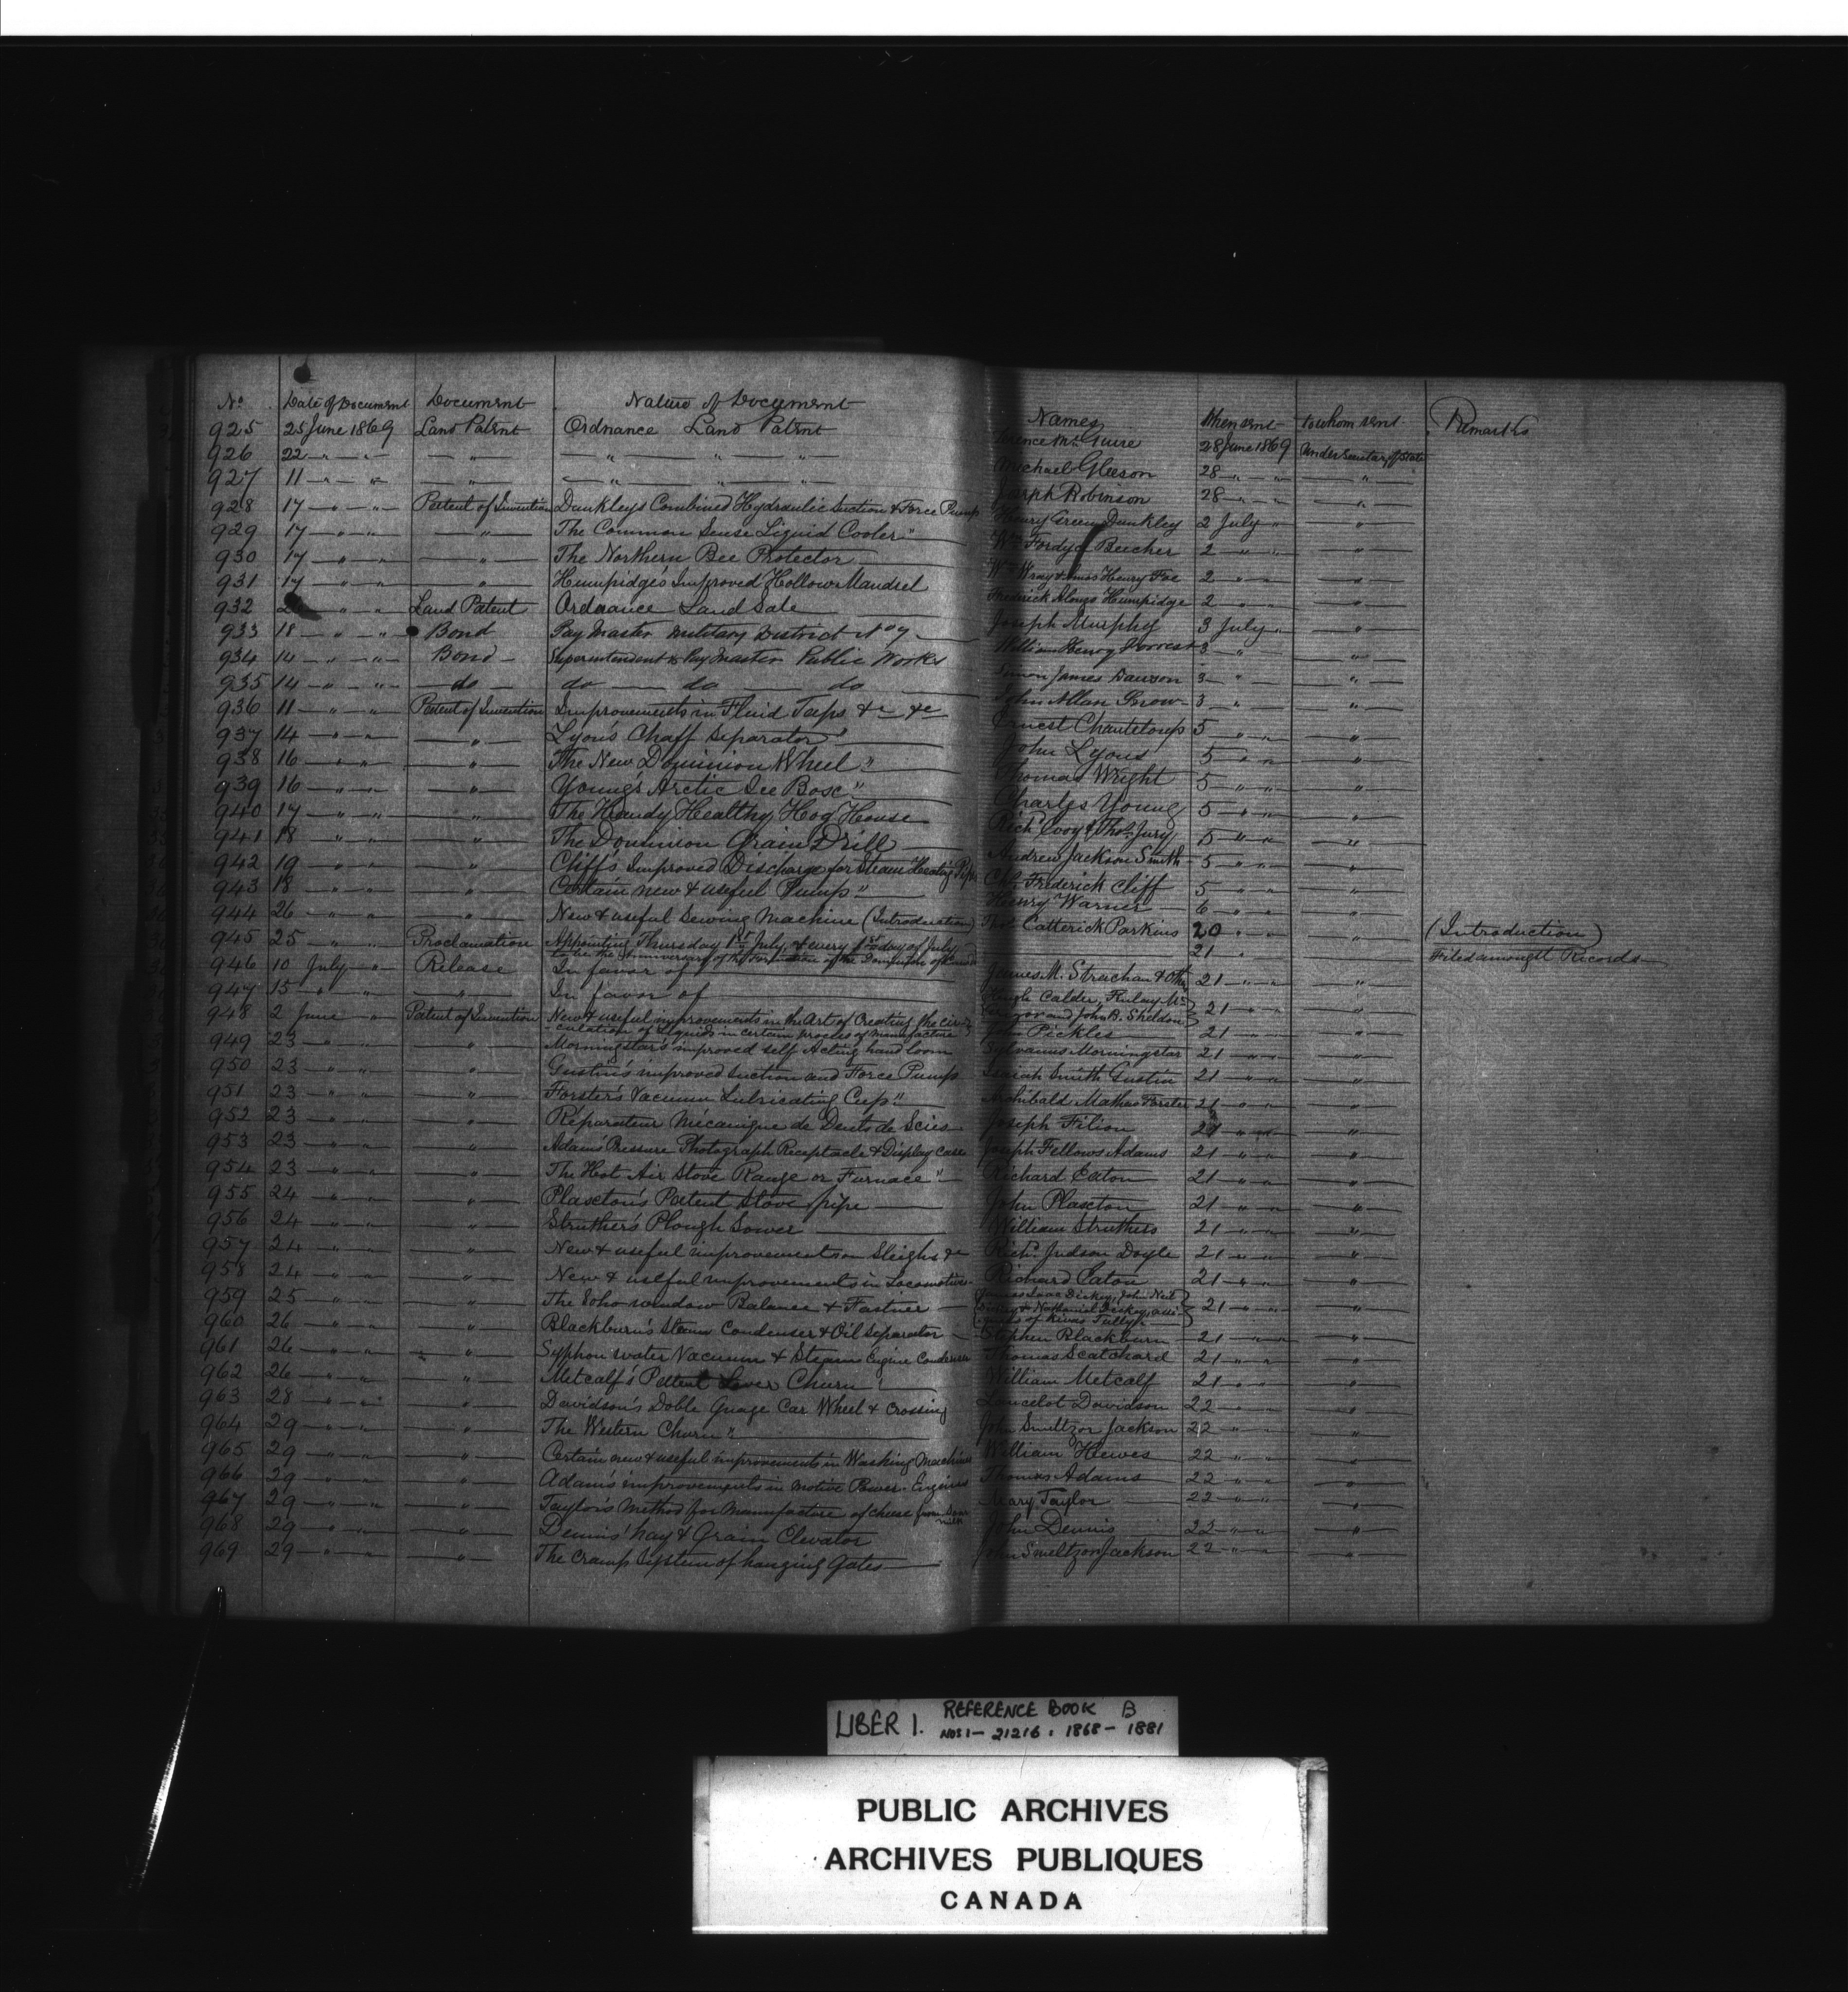 No Date of Document Document Nature of Document Names When sent To whom sent Remarks
925 25 June 1869 Land Patent Ordnance Land Patent Terence McGuire 28 June 1869 Under Secretary of State
926 22 " " " " " " Michael Gleeson 28 " " "
927 11 " " " " " " Joseph Robinson 28 " " "
928 17 " " Patent of Invention Dunkley's Combined Hydraulic Suction & Force Pump Henry Green Dunkley 2 July " "
929 17 " " " The Common Sense Liquid Cooler" Wm Fordyce Beecher 2 " " "
930 17 " " " The Northern Bee Protector Wm Wray & Amos Henry Foe 2 " " "
931 17 " " " Humpidge's Improved Hollow Mandrel Frederick Alonzo Humpidge 2 " " "
932 " " Land Patent Ordnance Land Sale Joseph Murphy 3 July " "
933 18 " " Bond Pay Master Military District No 7 William Henry Forrest 3 " "
934 14 " " Bond Superintendent & Pay Master Public Works Simon James Dawson 3 " "
935 14 " " do do do do John Allan Snow 3 " "
936 11 " " Patent of Invention Improvements in Fluid Taps &c &c Ernest Chanteloup 5 " " "
937 14 " " " Lyon's Chaff Separator" John Lyons 5 " " "
938 16 " " " The New Dominion Wheel" Thomas Wright 5 " " "
939 16 " " " Young's Arctic Ice Box" Charles Young 5 " " "
940 17 " " " The Handy Healthy Hog House Richd Ivory & Thos Jury 5 " " "
941 18 " " " The Dominion Grain Drill Andrew Jackson Smith 5 " " "
942 19 " " " Cliff's Improved Discharge for Steam Heating Pipe Chs Frederick Cliff 5 " " "
943 18 " " " Certain new & useful Pump" Henry Warner 6 " " "
944 26 " " " New & useful Sewing Machine (Introduction) Thos Catterick Parkins 20 " " " (Introduction)
945 25 " " Proclamation Appointing Thursday 1st July, & every 1st day of July 21 " Filed amongst Records
to be the Anniversary of the formation of the Dominion of Canada
946 10 July " Release In favor of James M. Strachan & Othrs 21 " " "
947 15 " " " In favor of Hugh Calder, Finlay Mc
and John B. Sheldon 21 " " "
948 2 June " Patent of Invention New & useful improvements in the Art of Creating the cir-
-culation of liquids in certain process of manufacture Pickles 21 " " "
949 23 " " " Morningstar's improved self Acting hand loom Sylvanus Morningstar 21 " " "
950 23 " " " Gustin's improved Suction and Force Pump Isaiah Smith Gustin 21 " " "
951 23 " " " Forster's Vacuum Lubricating Cup" Archibald Mathus Forster 21 " " "
952 23 " " " Réparateur Mécanique de Dents de Scies Joseph Filion 21 " " "
953 23 " " " Adams' Pressure Photograph Receptacle & Display Case Joseph Fellows Adams 21 " " "
954 23 " " " The Hot Air Stove Range or Furnace" Richard Eaton 21 " " "
955 24 " " " Plaxton's Patent Stove pipe John Plaxton 21 " " "
956 24 " " " Struthers' Plough Sower William Struthers 21 " " "
957 24 " " " New & useful improvement on Sleighs &c Richd Judson Doyle 21 " " "
958 24 " " " New & useful improvements in Locomotive Richard Eaton 21 " " "
959 25 " " " The Soho window Balance & Fastner James Isaac Dickey, John Neil
Dickey & Nathaniel Dickey, assi-
-gnees of Kivas Tully. 21 " " "
960 26 " " " Blackburn's Steam Condenser & Oil Separator Stephen Blackburn 21 " " "
961 26 " " " Syphon water Vacuum & Steam Engine Condenser Thomas Scatchard 21 " " "
962 26 " " " Metcalf's Patent Lever Churn William Metcalf 21 " " "
963 28 " " " Davidson's Doble Guage Car Wheel & Crossing Lancelot Davidson 22 " "
964 29 " " " The Western Churn" John Smeltzor Jackson 22 " " "
965 29 " " " Certain new & useful improvements in Washing Machines William Hewes 22 " " "
966 29 " " " Adam's improvements in Motive Power Engines Thomas Adams 22 " " "
967 29 " " " Taylor's Method for Manufacture of cheese from Sour
milk Mary Taylor 22 " " "
968 29 " " " Dennis' hay & Grain Elevator John Dennis 22 " " "
969 29 " " " The Cramp System of hanging Gates John Smeltzor Jackson 22 " " "
LIBER 1. REFERENCE BOOK B
NOS 1 - 21216. 1868 - 1881
PUBLIC ARCHIVES
ARCHIVES PUBLIQUES
CANADA